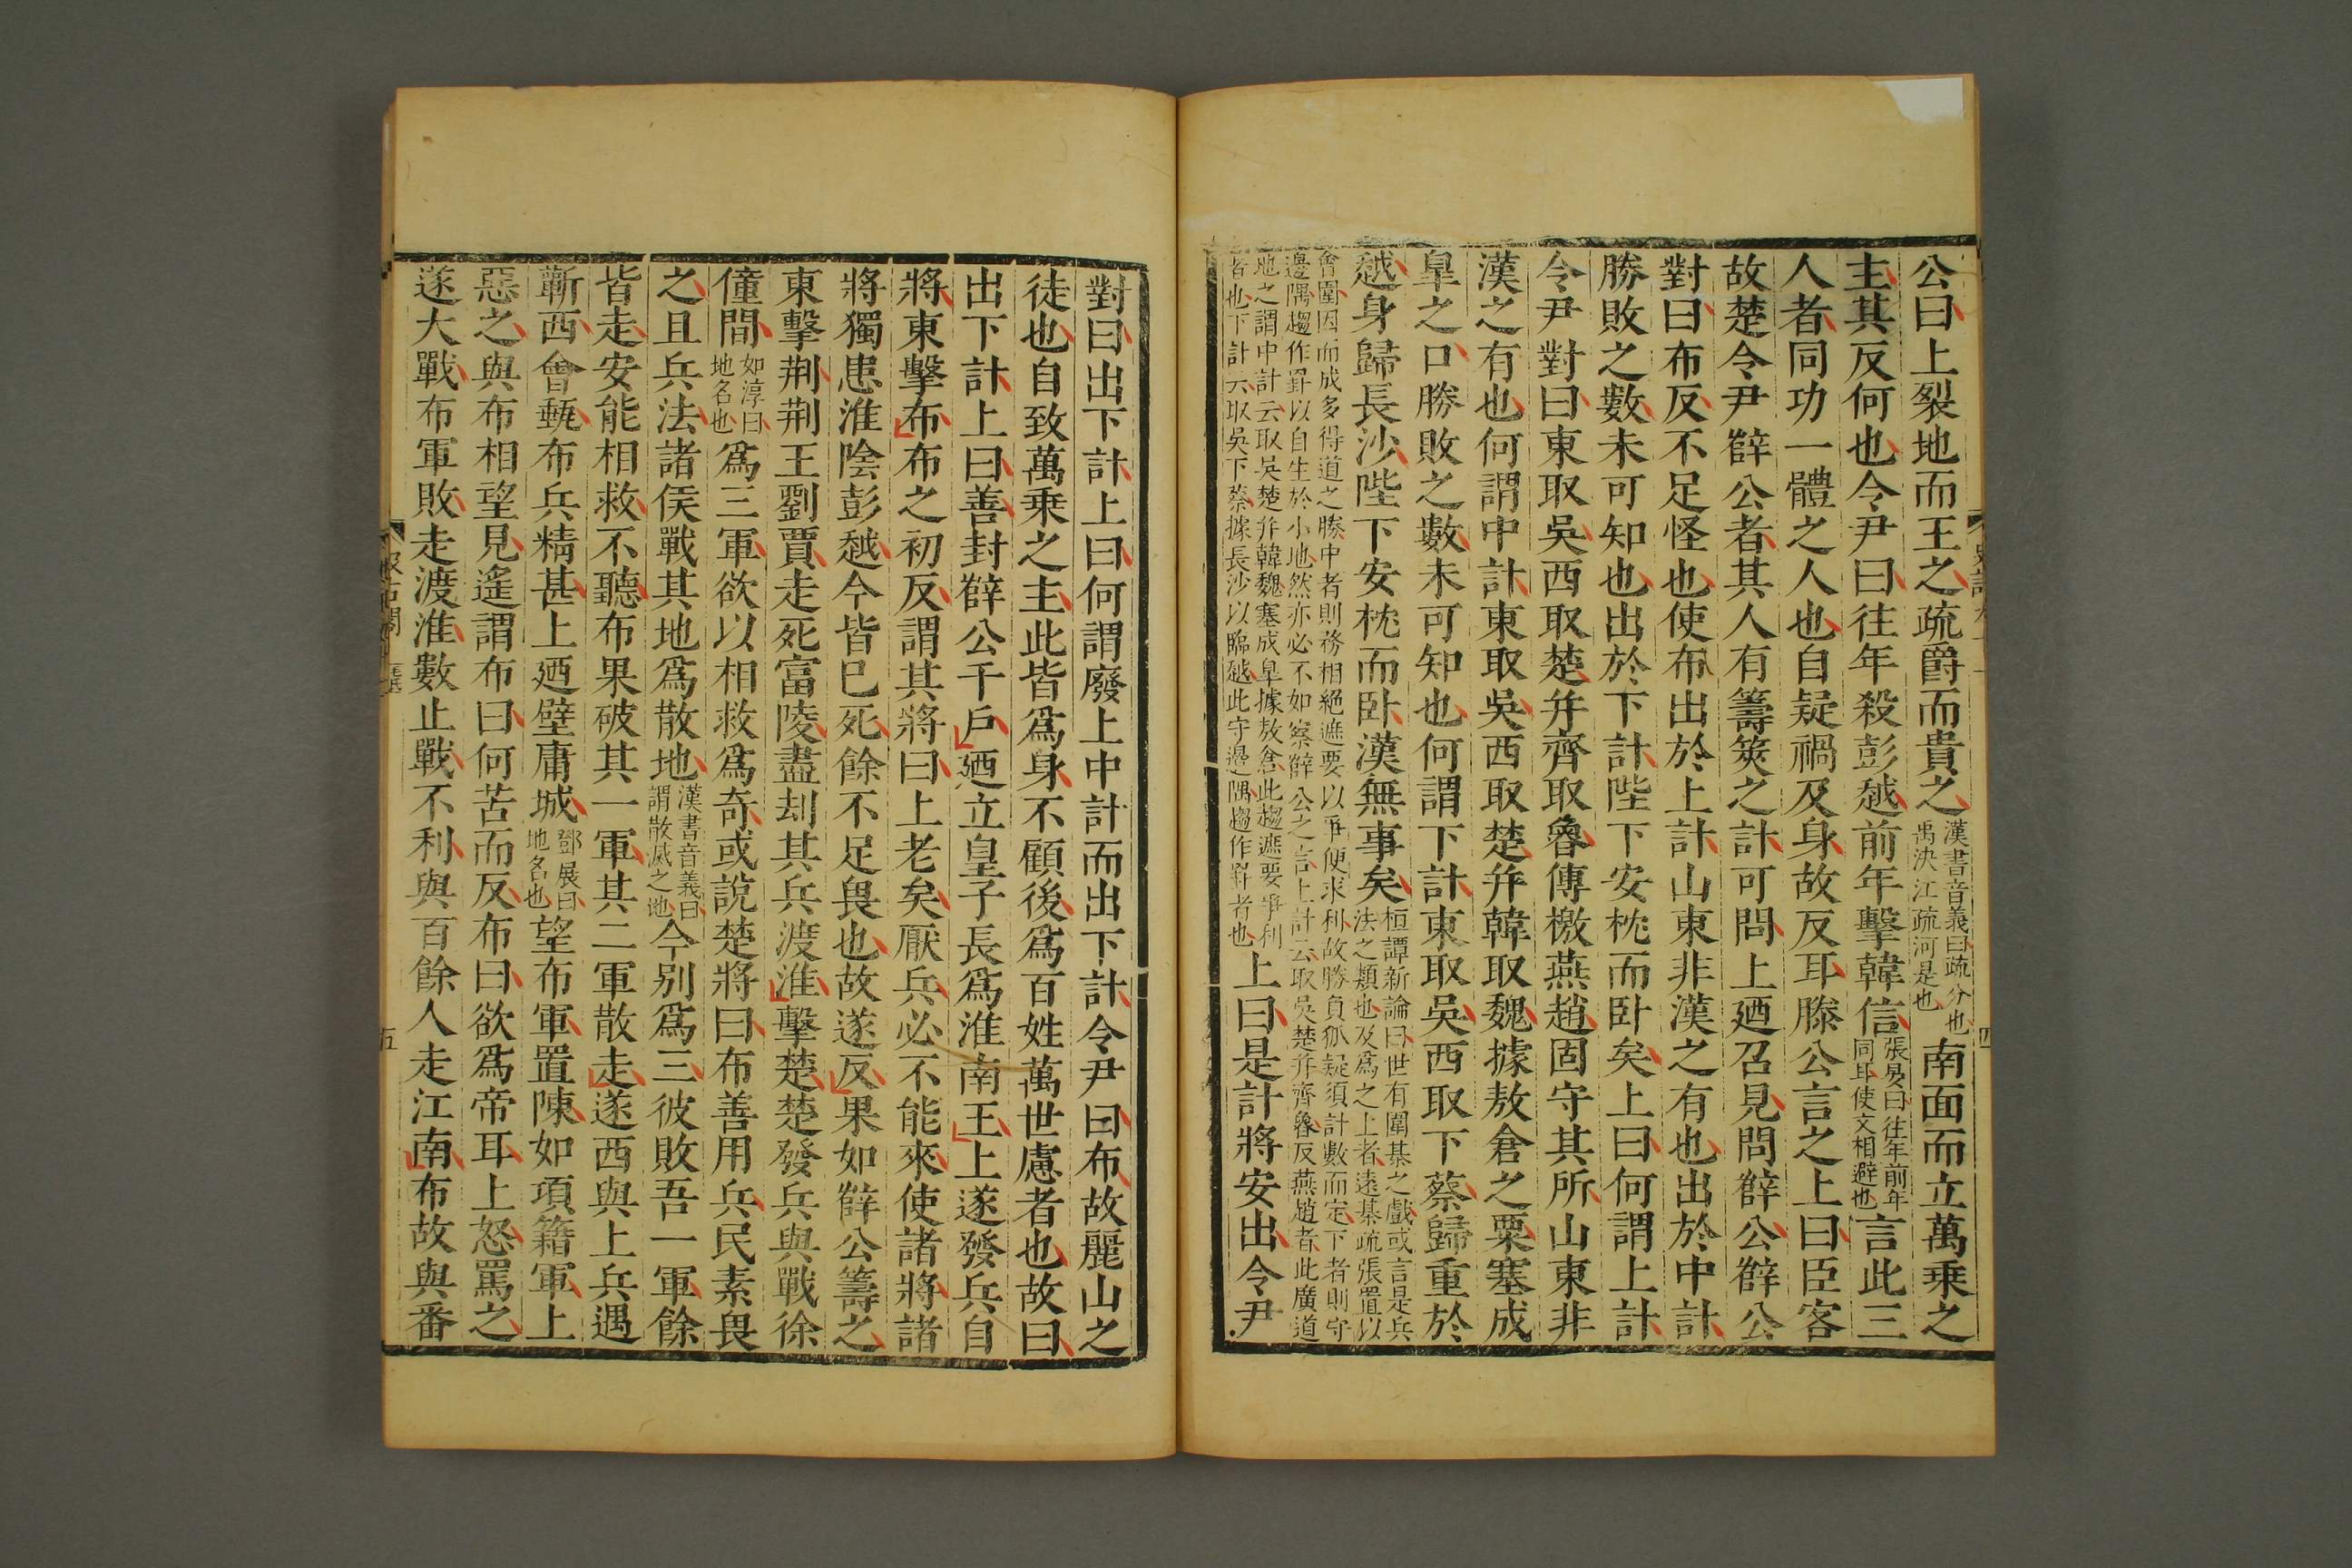 公曰上裂地而王之疏爵而貴之漢書音義曰疏分也禹決江疏河是也南面而立萬乗之
主其反何也令尹曰往年殺彭越前年擊韓信張晏曰往年前年同耳使文相避也言此三
人者同功一體之人也自疑禍及身故反耳滕公言之上曰臣客
故楚令尹薛公者其人有籌筴之計可問上廼召見問薛公薛公
對曰布反不足怪也使布出於上計山東非漢之有也出於中計
勝敗之數未可知也出於下計陛下安枕而卧矣上曰何謂上計
令尹對曰東取吳西取楚幷齊取魯傳檄燕趙固守其所山東非
漢之有也何謂中計東取吳西取楚幷韓取魏據敖倉之粟塞成
臯之口勝敗之數未可知也何謂下計東取吳西取下蔡歸重於
越身歸長沙陛下安枕而卧漢無事矣桓譚新論曰世有圍棊之戲或言是兵法之類也及爲之上者遠棊疏張置以
會圍因而成多得道之勝中者則務相絕遮要以爭便求利故勝負狐疑須計數而定下者則守邊隅趨作罫以自生於小地然亦必不如察薛公之言上計云取吳楚幷齊魯反燕趙者此廣道
地之謂中計云取吳楚幷韓魏塞成臯據敖倉此趨遮要爭利者也下計云取吳下蔡據長沙以臨越此守邊隅趨作罫者也上曰是計將安出令尹
史記九十一
四
對曰出下計上曰何謂廢上中計而出下計令尹曰布故麗山之
徒也自致萬乗之主此皆爲身不顧後爲百姓萬世慮者也故曰
出下計上曰善封薛公千戶廼立皇子長爲淮南王上遂發兵自
將東擊布布之初反謂其將曰上老矣厭兵必不能來使諸將諸
將獨患淮陰彭越今皆已死餘不足畏也故遂反果如薛公籌之
東擊荆荆王劉賈走死富陵盡刦其兵渡淮擊楚楚發兵與戰徐
僮間如淳曰地名也爲三軍欲以相救爲奇或說楚將曰布善用兵民素畏
之且兵法諸侯戰其地爲散地漢書音義曰謂散滅之地今别爲三彼敗吾一軍餘
皆走安能相救不聽布果破其一軍其二軍散走遂西與上兵遇
蘄西會甀布兵精甚上廼壁庸城鄧展曰地名也望布軍置陳如項籍軍上
惡之與布相望見遙謂布曰何苦而反布曰欲爲帝耳上怒罵之
遂大戰布軍敗走渡淮數止戰不利與百餘人走江南布故與番
五